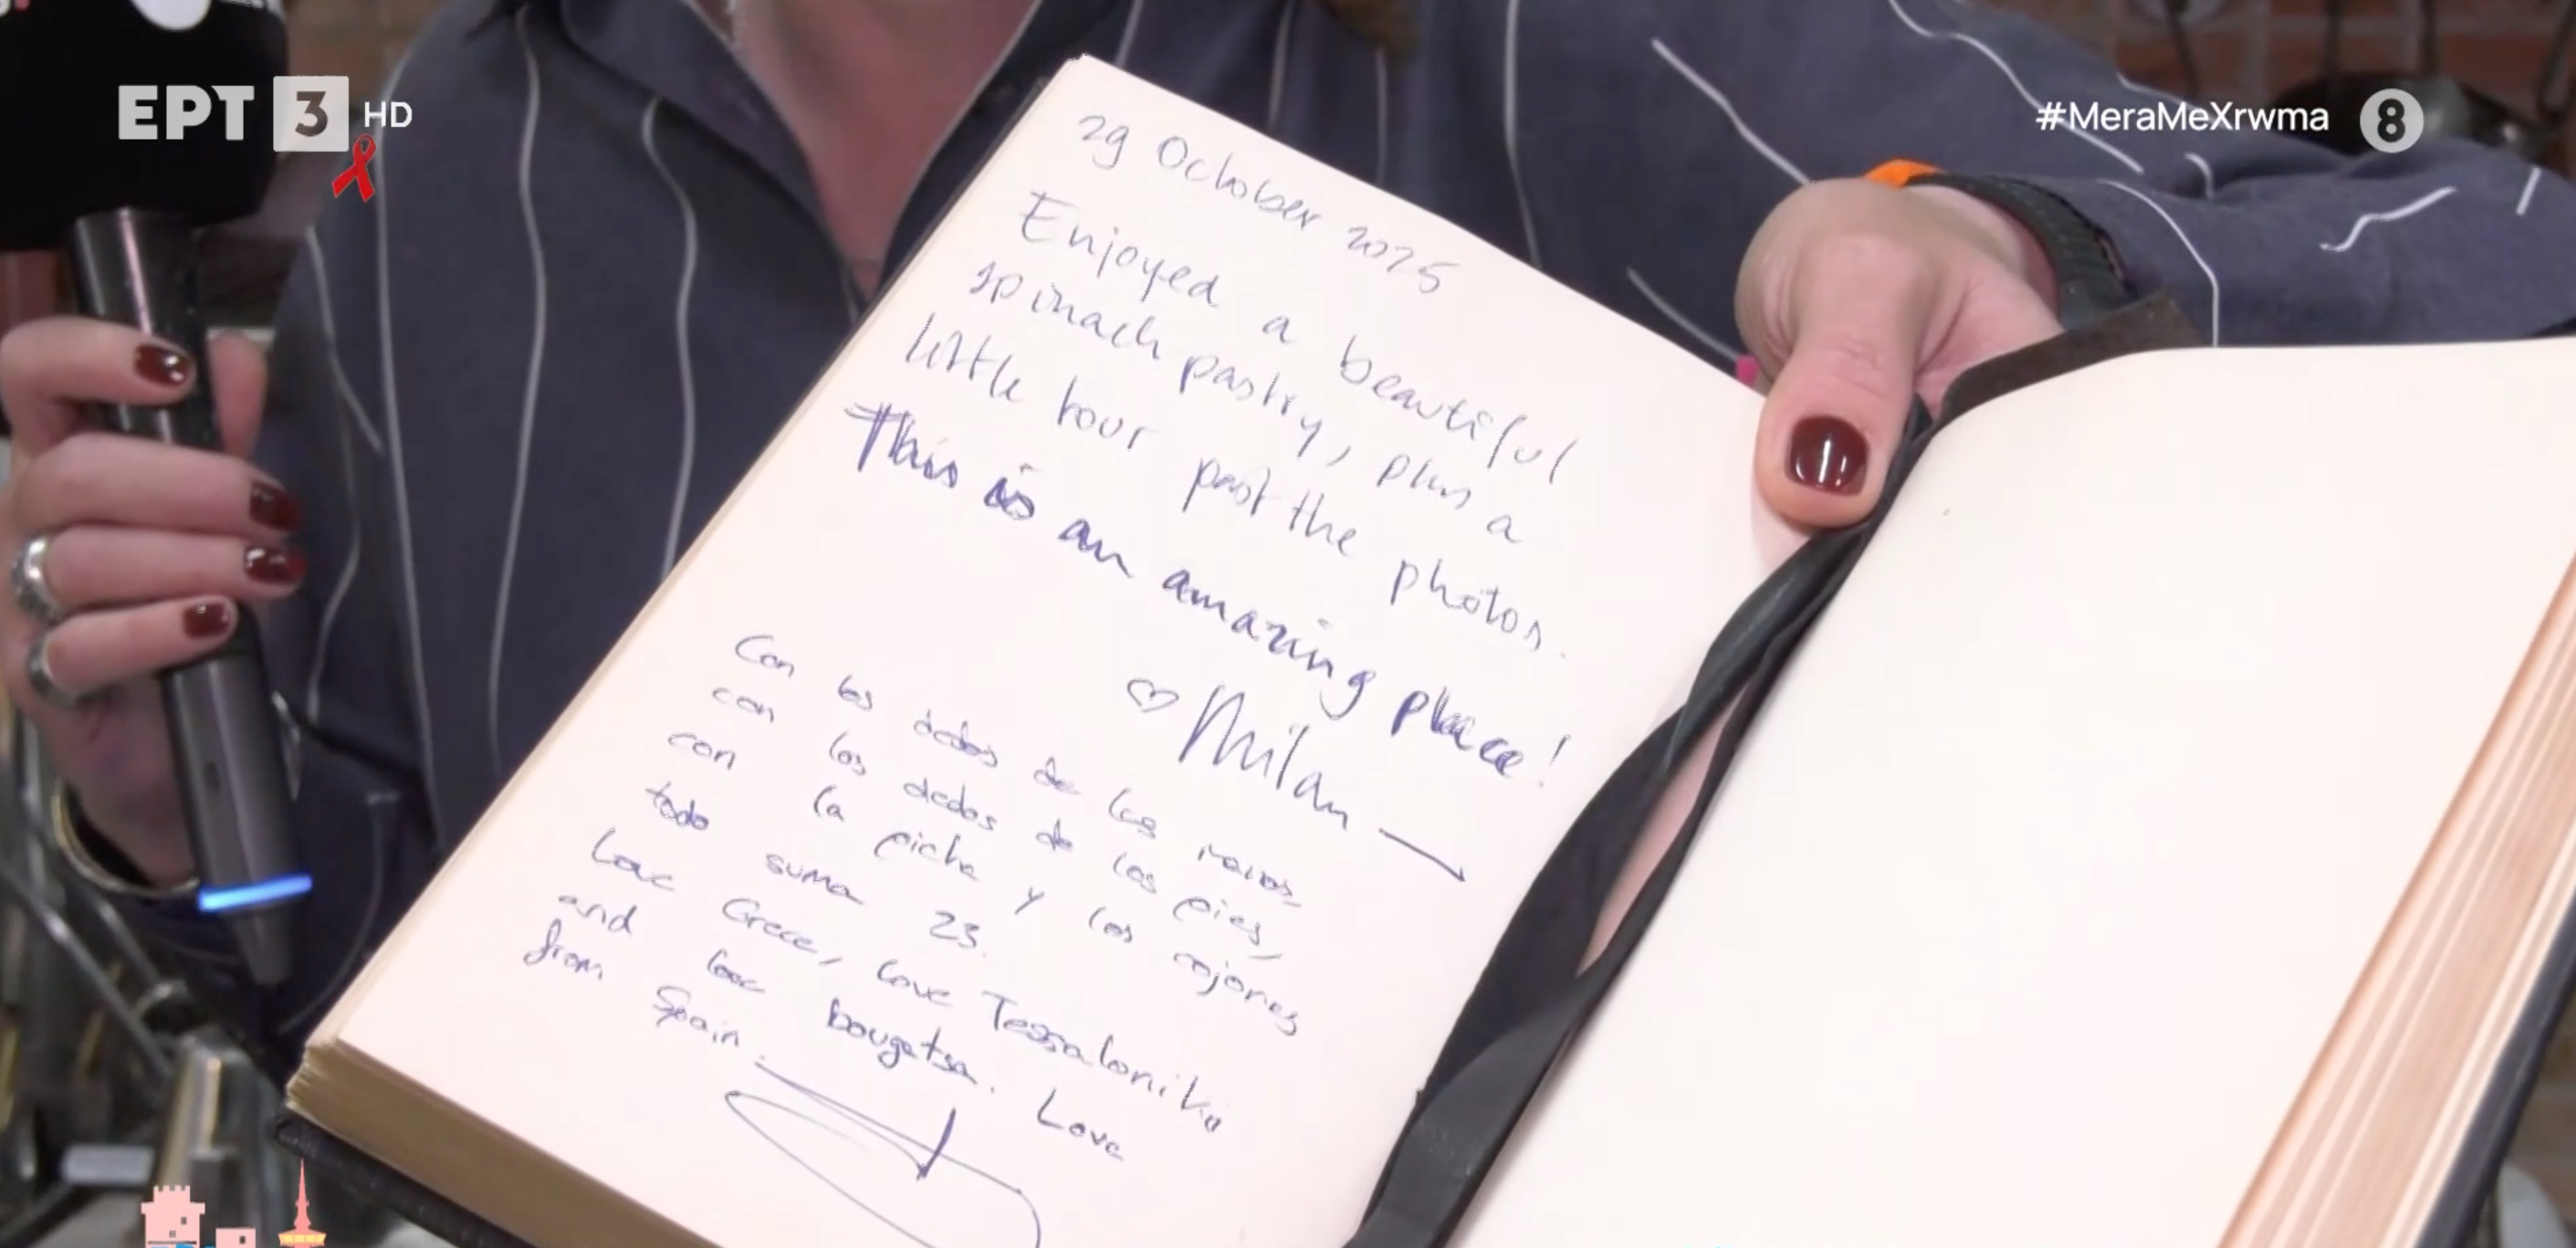 ΕΡΤ 3 HD
#MeraMeXrwma 8
29 October 2025
Enjoyed a beautiful
spinach pastry, plus a
little tour past the photos.
This is an amazing place!
♡ Milan
Con los dedos de las manos,
con los dedos de los pies,
con la picha y los cojones
todo suma 23.
Love Grece, love Tessaloniki
and love bougatsa. Love
from Spain.